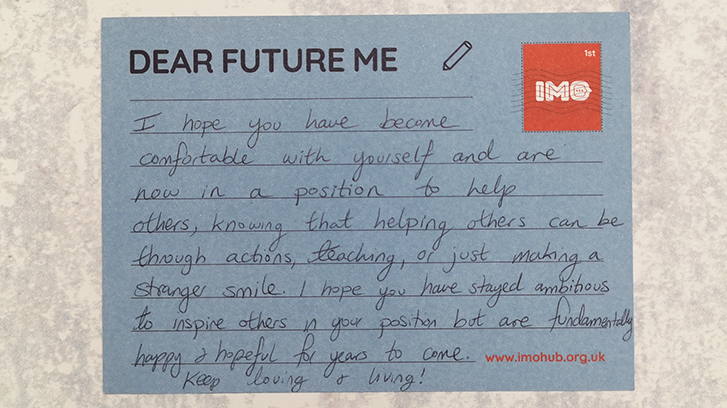 DEAR FUTURE ME
1st
IMO
I hope you have become
comfortable with yourself and are
now in a position to help
others, knowing that helping others can be
through actions, teaching, or just making a
stranger smile. I hope you have stayed ambitious
to inspire others in your position but are fundamentally
happy & hopeful for years to come.
www.imohub.org.uk
Keep loving & living!